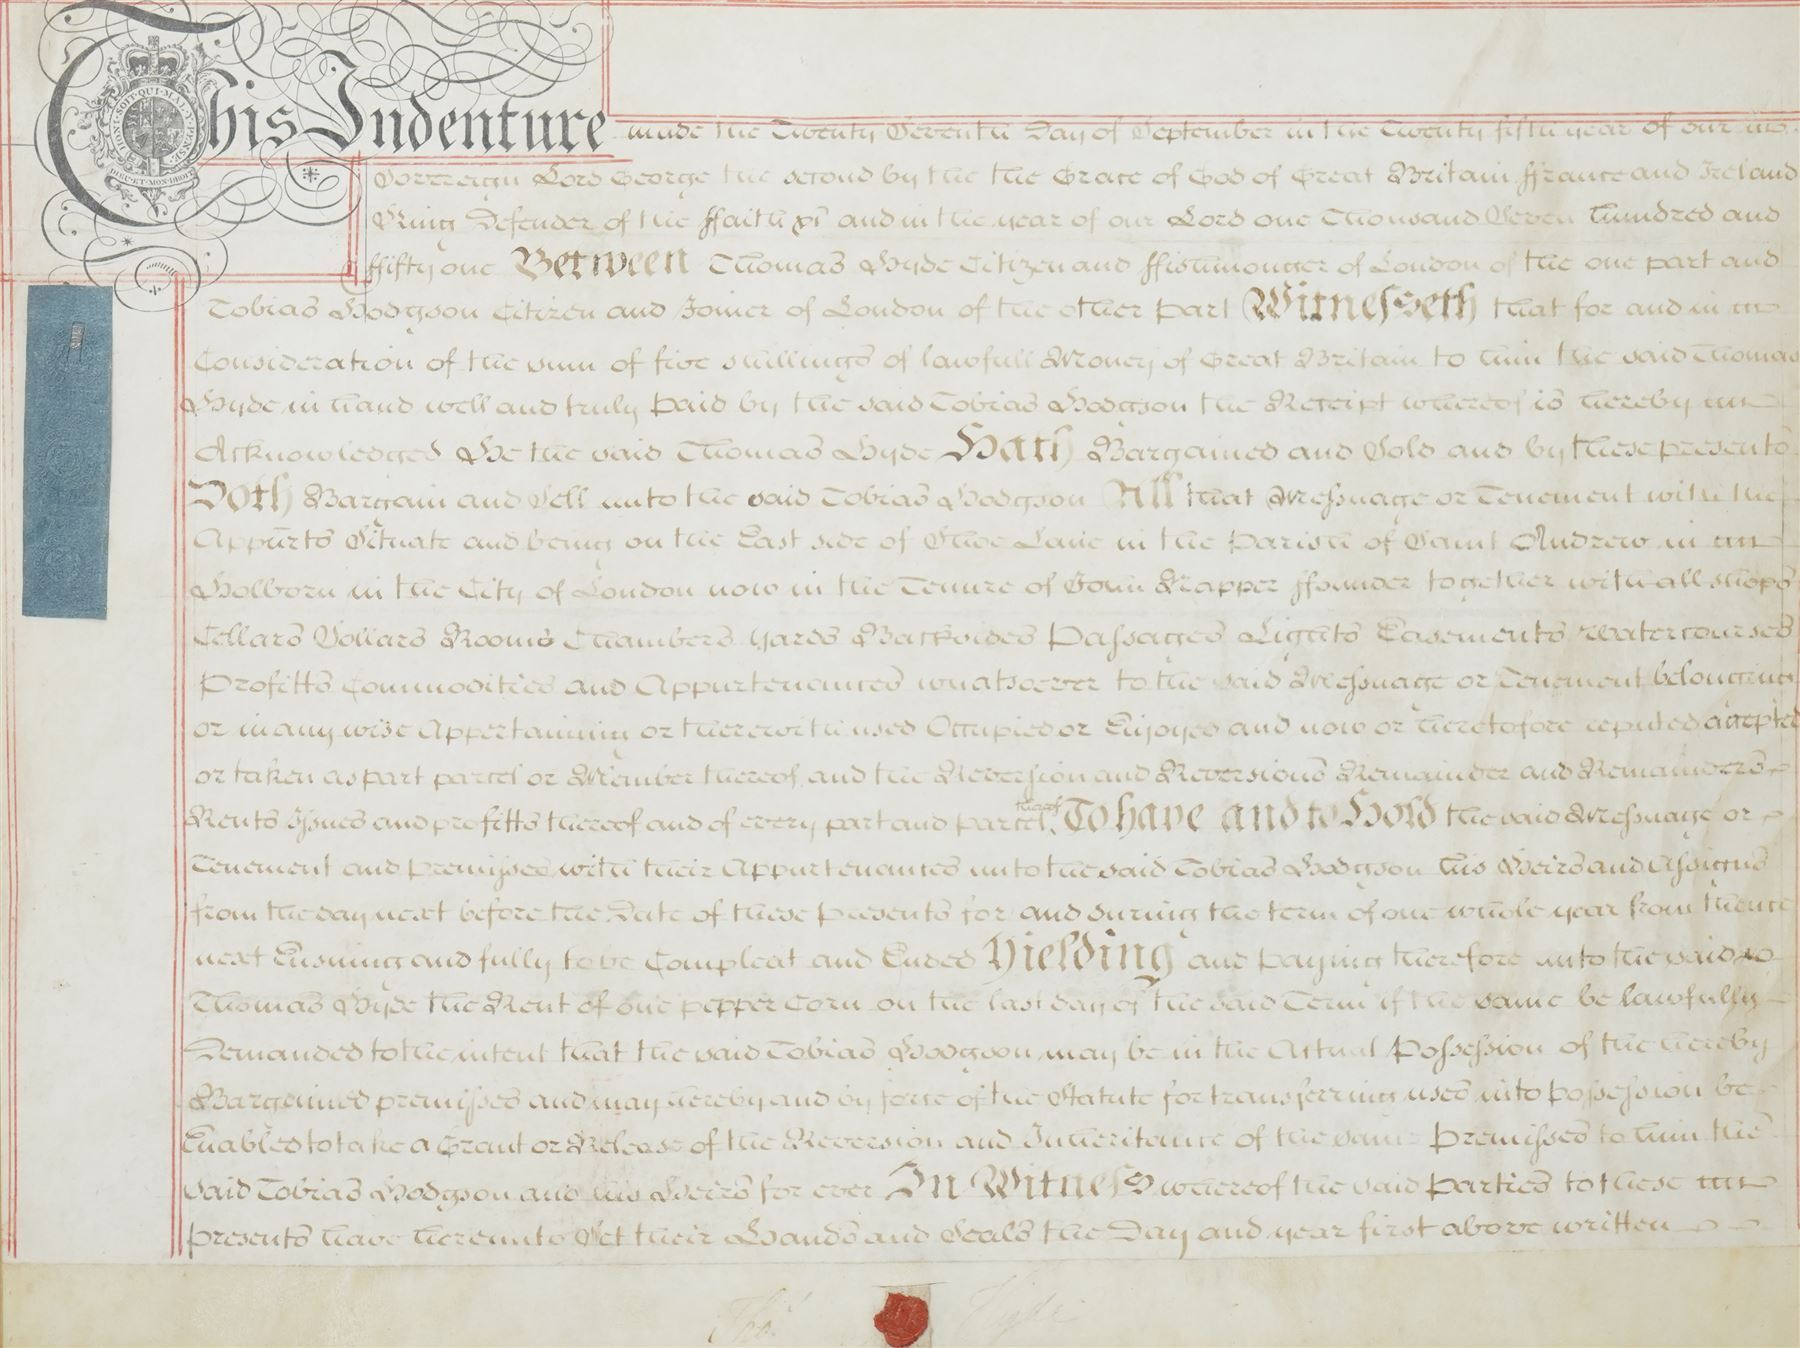 This Indenture made the Twenty Seventh Day of September in the Twenty fifth year of our
Sovereign Lord George the second by the the Grace of God of Great Britain ffrance and Ireland
King Defender of the ffaith &c and in the year of our Lord one Thousand Seven hundred and
ffifty one Between Thomas Hyde Citizen and ffishmonger of London of the one part and
Tobias Hodgson Citizen and Joiner of London of the other part Witnesseth that for and in
Consideration of the sum of five shillings of lawfull Money of Great Britain to him the said Thomas
Hyde in hand well and truly paid by the said Tobias Hodgson the Receipt whereof is hereby
Acknowledged He the said Thomas Hyde Hath Bargained and Sold and by these presents
Doth Bargain and Sell unto the said Tobias Hodgson All that Messuage or Tenement with the
Appurts Situate and being on the East side of Shoe Lane in the Parish of Saint Andrew in
Holborn in the City of London now in the Tenure of John ffounder together with all shops
Cellars Sollars Rooms Chambers Yards Backsides Passages Lights Easements Watercourses
Profitts Commodities and Appurtenances whatsoever to the said Messuage or Tenement belonging
or in any wise Appertaining or therewith used Occupied or Enjoyed and now or heretofore reputed accepted
or taken as part parcel or Member thereof and the Reversion and Reversions Remainder and Remainders
Rents Issues and profitts thereof and of every part and parcel thereof To have and to Hold the said Messuage or
Tenement and premisses with their Appurtenances unto the said Tobias Hodgson his Heirs and Assigns
from the day next before the Date of these presents for and during the term of one whole year from thence
next Ensuing and fully to be Compleat and Ended Yielding and paying therefore unto the said
Thomas Hyde the Rent of one pepper Corn on the last day of the said Term if the same be lawfully
Demanded to the intent that the said Tobias Hodgson may be in the Actual Possession of the hereby
Bargained premisses and may hereby and by force of the Statute for transferring uses into possession be
Enabled to take a Grant or Release of the Reversion and Inheritance of the same Premisses to him the
said Tobias Hodgson and his Heirs for ever In Witness whereof the said Parties to these
presents have hereunto Set their Hands and Seals the Day and year first above written
Tho.s Hyde
HONI·SOIT·QUI·MAL·Y·PENSE
DIEU·ET·MON·DROIT